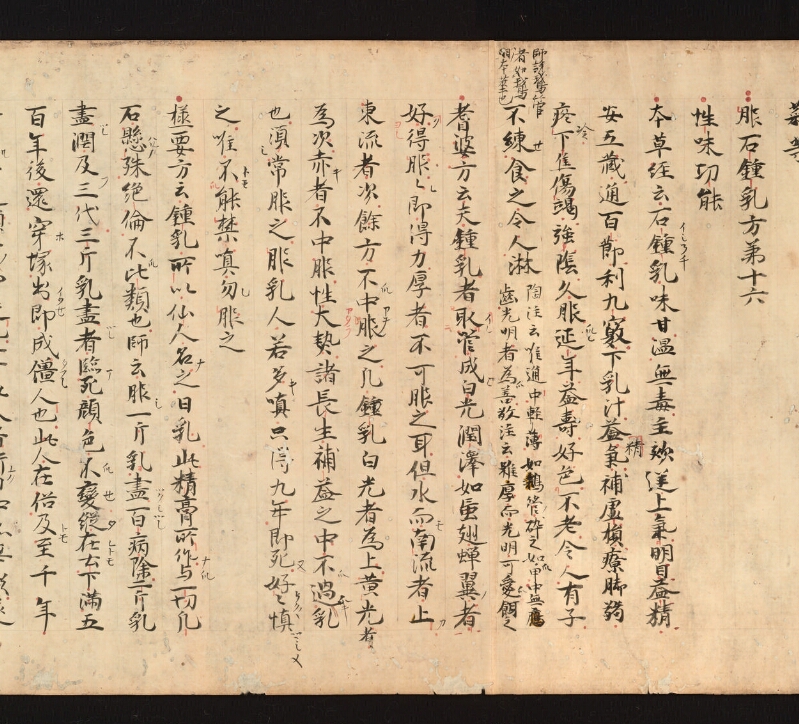 服石鍾乳方第十六
性味功能
本草經云石鍾乳味甘溫無毒主欬逆上氣明目益精
安五藏通百節利九竅下乳汁益氣補虛損療脚弱
疼下焦傷竭強陰久服延年益壽好色不老令人有子
不練食之令人淋
陶注云唯通中輕薄如鵝管碎之如甲中無
齒光明者為善
注云雖厚而光明可愛餌之
耆婆方云夫鍾乳者取管成白光潤澤如蜜翅蟬翼者
好得服々即得力厚者不可服之耳但水而南流者上
東流者次餘方不中服之凡鍾乳白光者為上黃光者
為次赤者不中服性大熱諸長生補益之中不過乳
也須常服之服乳人若多嗔只得九年即死好々慎
之唯不能禁嗔勿服之
樣要方云鍾乳所以仙人名之曰乳此精膏所作与一切凡
石懸殊絕倫不比類也師云服一斤乳盡百病除二斤乳
盡潤及三代三斤乳盡者臨死顏色不變縱在土下滿五
百年後還穿塚出即成僵人也此人在俗及至千年